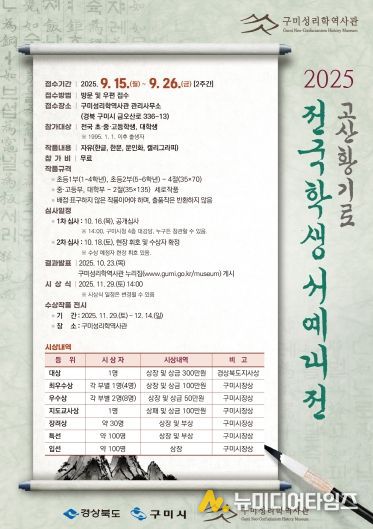 구미성리학역사관
Gumi Neo-Confucianism History Museum
2025
고산 황기로
전국학생서예대전
접수기간 | 2025. 9. 15.(월) ~ 9. 26.(금) [2주간]
접수방법 | 방문 및 우편 접수
접수장소 | 구미성리학역사관 관리사무소
(경북 구미시 금오산로 336-13)
참가대상 | 전국 초·중·고등학생, 대학생
※ 1995. 1. 1. 이후 출생자
작품내용 | 자유(한글, 한문, 문인화, 캘리그라피)
참 가 비 | 무료
작품규격
초등1부(1~4학년), 초등2부(5~6학년) - 4절(35×70)
중·고등부, 대학부 - 2절(35×135) 세로작품
배접·표구하지 않은 작품이어야 하며, 출품작은 반환하지 않음
심사일정
1차 심사 : 10. 16.(목), 공개심사
※ 14:00, 구미시청 4층 대강당, 누구든 참관할 수 있음.
2차 심사 : 10. 18.(토), 현장 휘호 및 수상자 확정
※ 수상 예정자 현장 휘호 있음.
결과발표 | 2025. 10. 23.(목)
구미성리학역사관 누리집(www.gumi.go.kr/museum) 게시
시 상 식 | 2025. 11. 29.(토) 14:00
※ 시상식 일정은 변경될 수 있음
수상작품 전시
기 간 : 2025. 11. 29.(토) ~ 12. 14.(일)
장 소 : 구미성리학역사관
시상내역
등 위 시 상 자 시상내역 비 고
대상 1명 상장 및 상금 300만원 경상북도지사상
최우수상 각 부별 1명(4명) 상장 및 상금 100만원 구미시장상
우수상 각 부별 2명(8명) 상장 및 상금 50만원 구미시장상
지도교사상 1명 상패 및 상금 100만원 구미시장상
장려상 약 30명 상장 및 부상 구미시장상
특선 약 100명 상장 및 부상 구미시장상
입선 약 100명 상장 구미시장상
경상북도
구미시
구미성리학역사관
Gumi Neo-Confucianism History Museum
뉴미디어타임즈